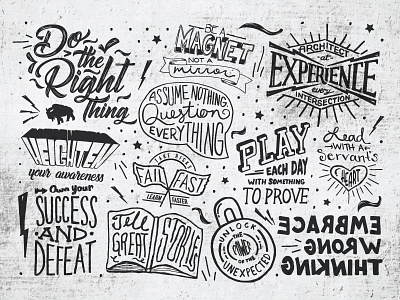 Do
the
Right
thing
BE A
MAGNET
NOT A
mirror
ARCHITECT
at
EXPERIENCE
every
INTERSECTION
ASSUME NOTHING,
Question
EVERYTHING
HEIGHTEN
your awareness
TAKE RISKS
FAIL FAST
LEARN FASTER
PLAY
EACH DAY
WITH SOMETHING
TO PROVE
Lead
WITH A
Servant's
HEART
Own your
SUCCESS
AND
DEFEAT
Tell
GREAT
STORIES
UNLOCK
THE
POWER
OF THE
UNEXPECTED
EMBRACE
WRONG
THINKING